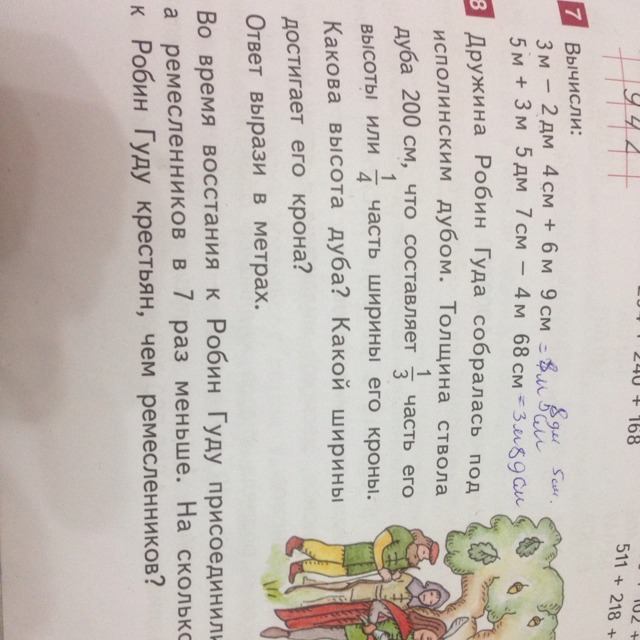 942
248 + 168
511 + 218 +
7 Вычисли:
3 м – 2 дм 4 см + 6 м 9 см = 8м 8дм 5см.
5 м + 3 м 5 дм 7 см – 4 м 68 см = 3м 8д 9см
8 Дружина Робин Гуда собралась под
исполинским дубом. Толщина ствола
дуба 200 см, что составляет 1/3 часть его
высоты или 1/4 часть ширины его кроны.
Какова высота дуба? Какой ширины
достигает его крона?
Ответ вырази в метрах.
Во время восстания к Робин Гуду присоединили
а ремесленников в 7 раз меньше. На сколько
к Робин Гуду крестьян, чем ремесленников?